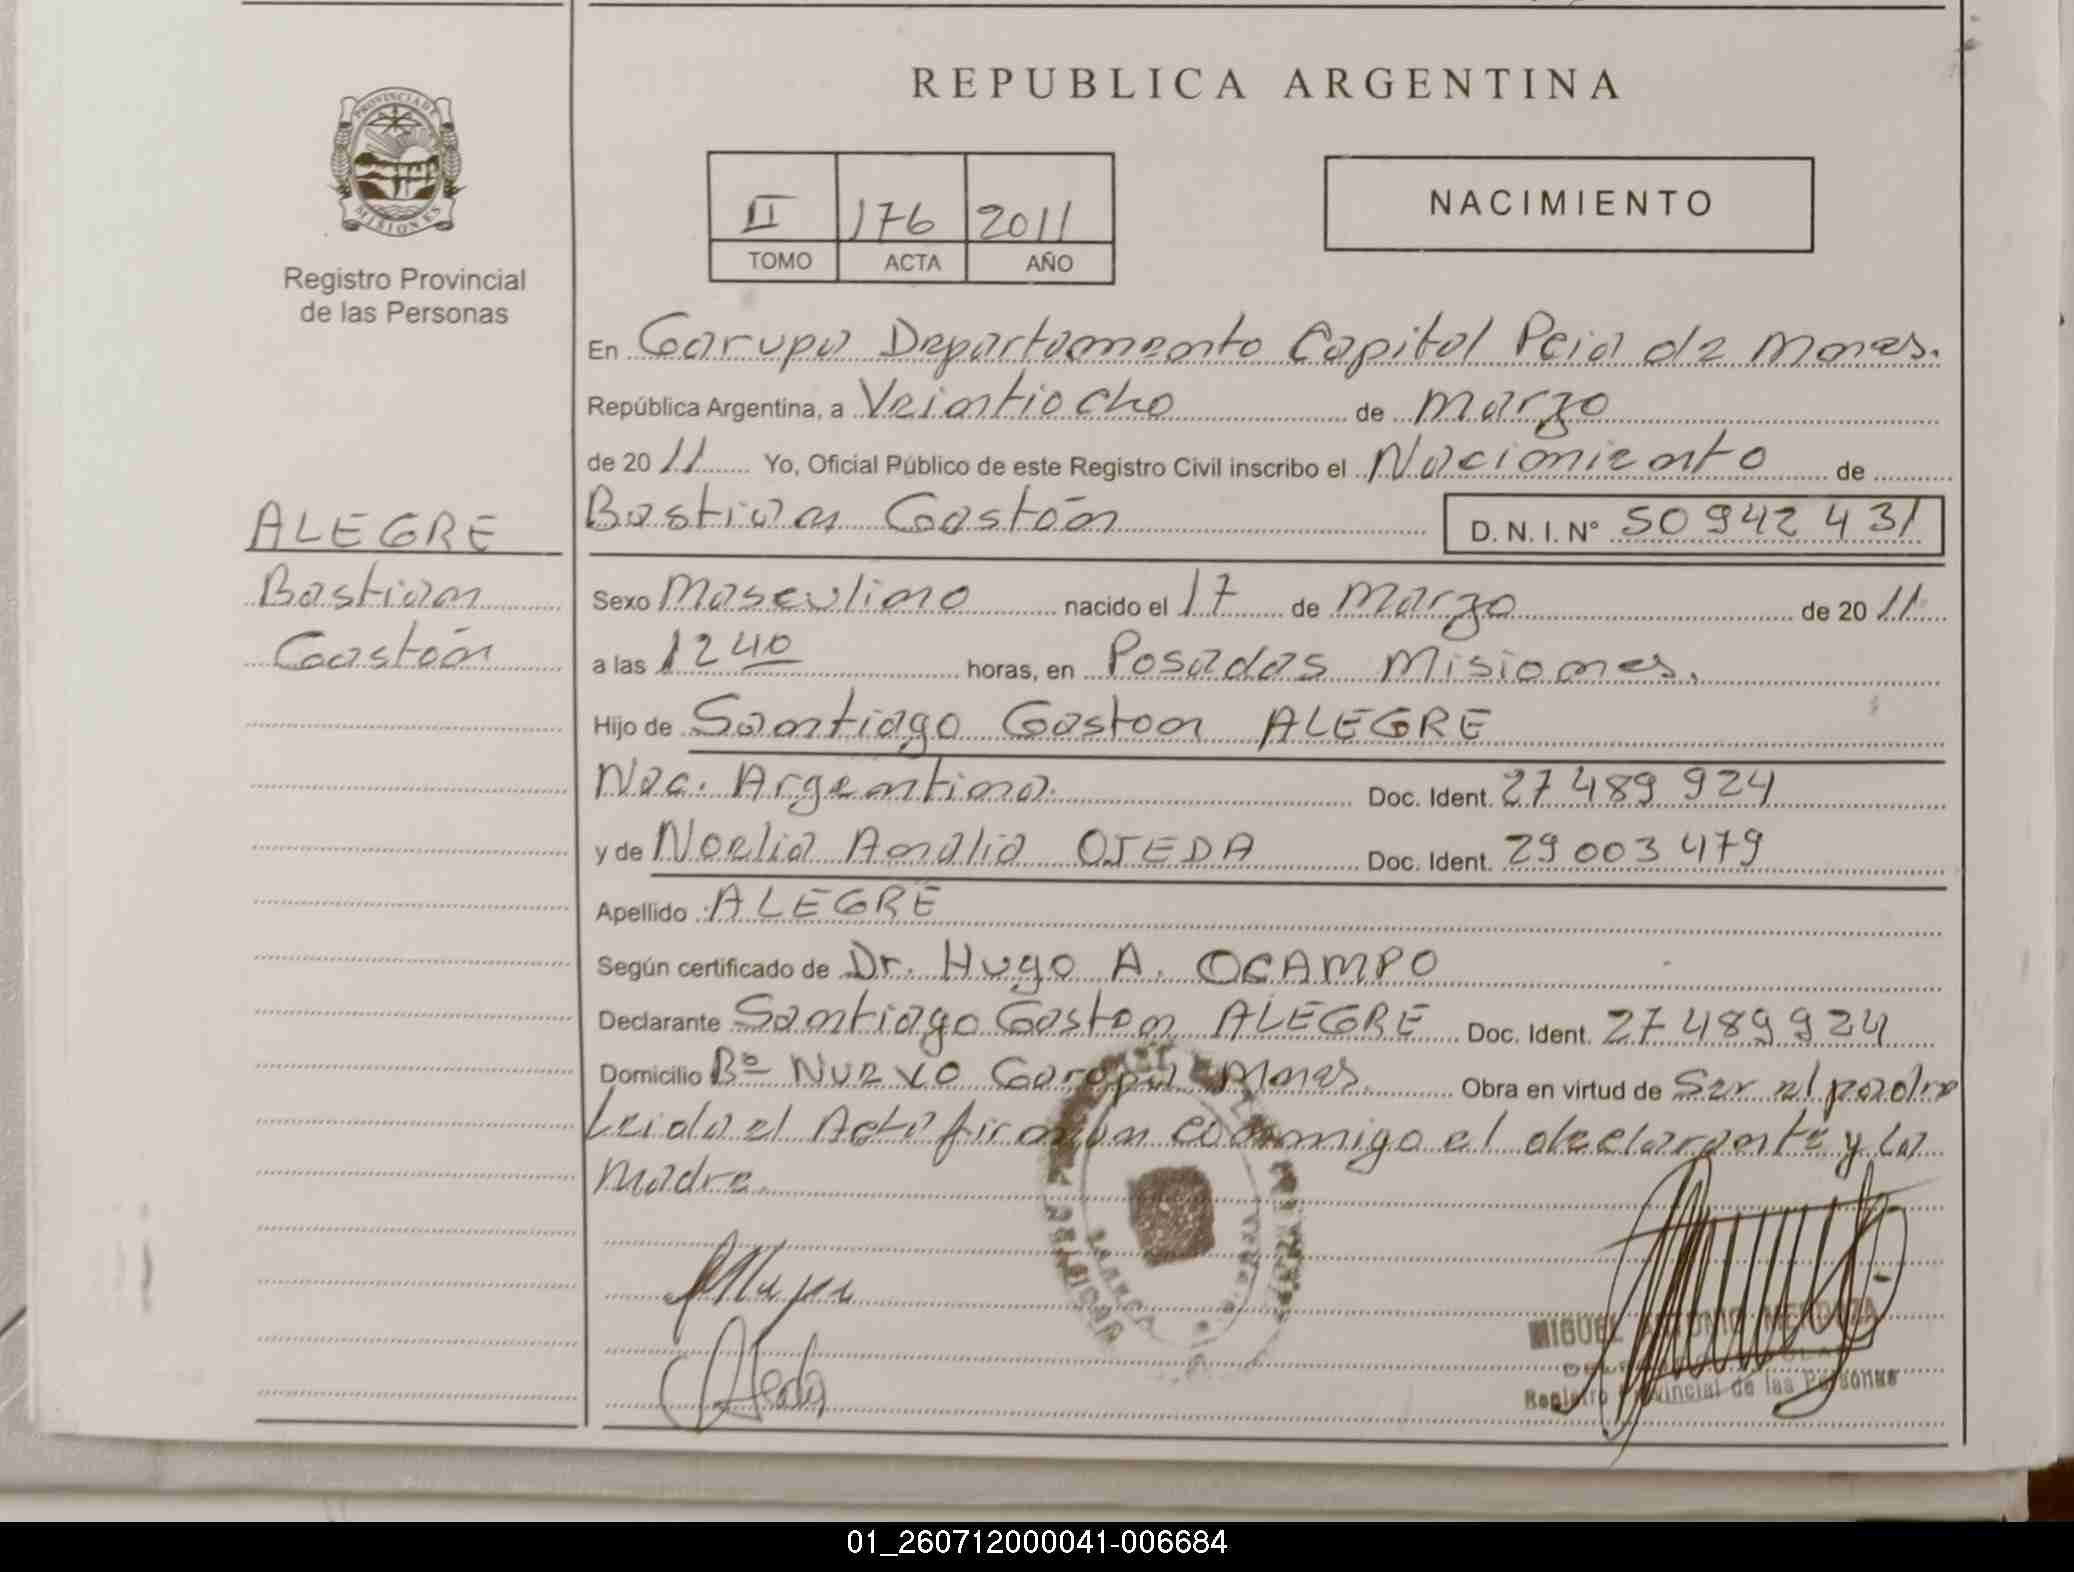 REPUBLICA ARGENTINA
PROVINCIA DE
MISIONES
Registro Provincial
de las Personas
II 176 2011
TOMO ACTA AÑO
NACIMIENTO
En Garupa Departamento Capital Pcia de Mnes.
República Argentina, a Veintiocho de Marzo
de 2011 Yo, Oficial Público de este Registro Civil inscribo el Nacimiento de
ALEGRE
Bastian
Gastón
Bastian Gastón D. N. I. N° 50 942 431
Sexo Masculino nacido el 17 de Marzo de 2011
a las 12 40 horas, en Posadas Misiones.
Hijo de Santiago Gaston ALEGRE
Nac. Argentina. Doc. Ident. 27 489 924
y de Noelia Analia OJEDA Doc. Ident. 29 003 479
Apellido ALEGRE
Según certificado de Dr. Hugo A. OCAMPO
Declarante Santiago Gaston ALEGRE Doc. Ident. 27 489 924
Domicilio Bº Nuevo Garupa Mnes. Obra en virtud de Ser el padre
Leida el Acta firman conmigo el declarante y la
Madre.
MIGUEL ANTONIO MENDOZA
Registro Provincial de las Personas
01_260712000041-006684